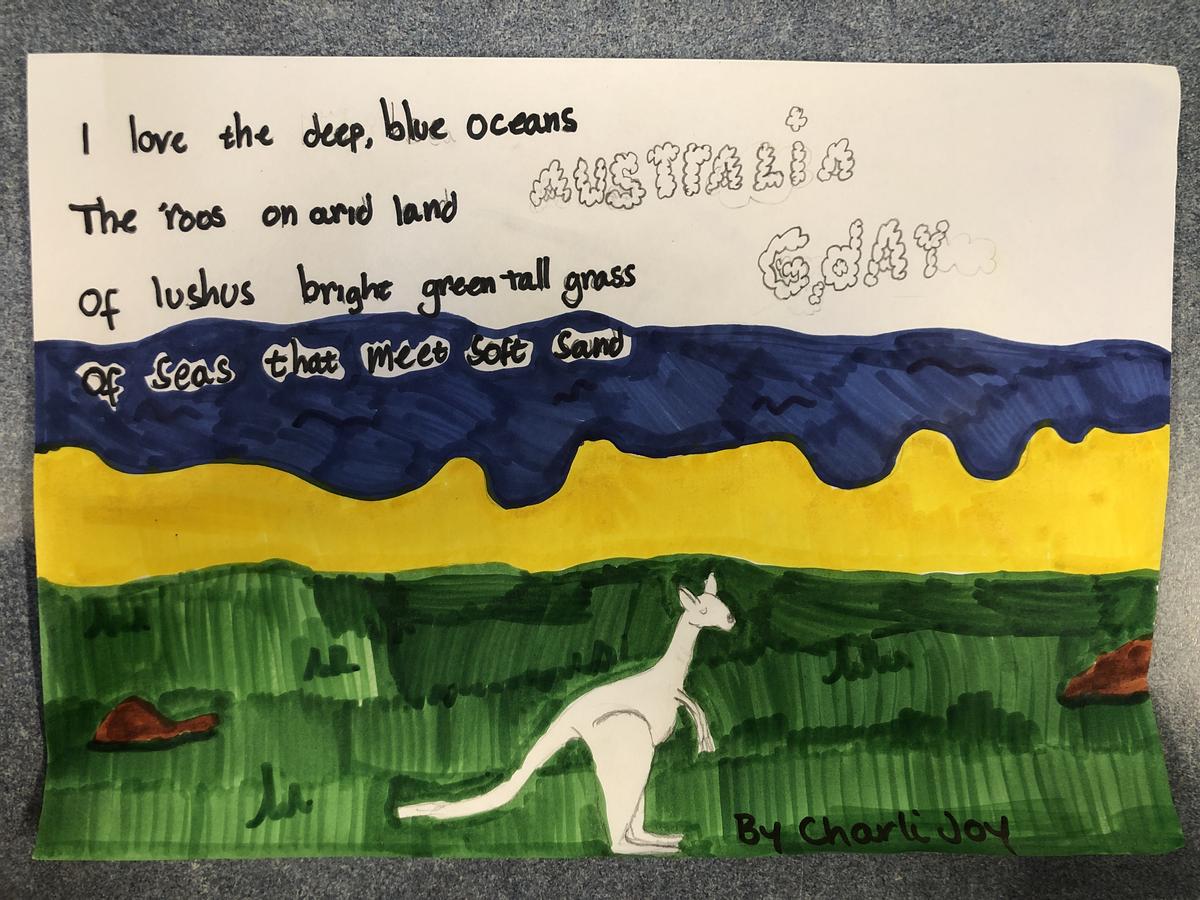 I love the deep, blue oceans
AUSTRALiA
The 'roos on arid land
GdAY
Of lushus bright green tall grass
Of seas that meet soft sand
By Charli Joy